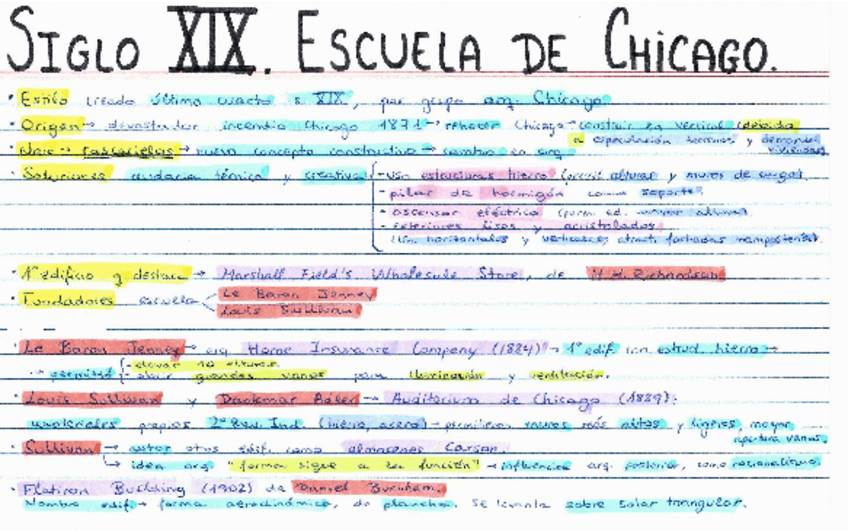 SIGLO XIX. ESCUELA DE CHICAGO.
· Estilo creado último cuarto s. XIX, por grupo arq. Chicago
· Origen → devastador incendio Chicago 1871 → rehacer Chicago → construir en vertical (debido
a especulación terrenos y demanda viviendas)
rascacielos → nuevo concepto constructivo → cambio en arq.
· Soluciones audacia técnica y creativa - uso estructuras hierro altura y muros de carga).
- pilar de hormigón como soporte.
- ascensor eléctrico (perm. ed. mayor altura).
- exteriores lisos y acristalados.
horizontales y verticales, fachadas mampostería).
· 1º edificio q destaca → Marshall Field's Wholesale Store, de H.H. Richardson
· Fundadores escuela Le Baron Jenney
Louis Sullivan
· Le Baron Jenney → arq. Home Insurance Company (1884) → 1º edif. con estruct. hierro →
→ permitió - elevar altura
- abrir grandes vanos para iluminación y ventilación.
· Louis Sullivan y Dankmar Adler → Auditorium de Chicago (1889):
materiales propios 2ª Rev. Ind. (hierro, acero) → permitieron muros más altos y ligeros, mayor
apertura vanos.
· Sullivan → autor otros edif. como almacenes Carson.
→ idea arq. "forma sigue a la función" → influencia arq. posterior, como racionalismo.
· Flatiron Building (1902) de Daniel Burnham.
Nombre edif. → forma aerodinámica, de plancha. Se levanta sobre solar triangular.